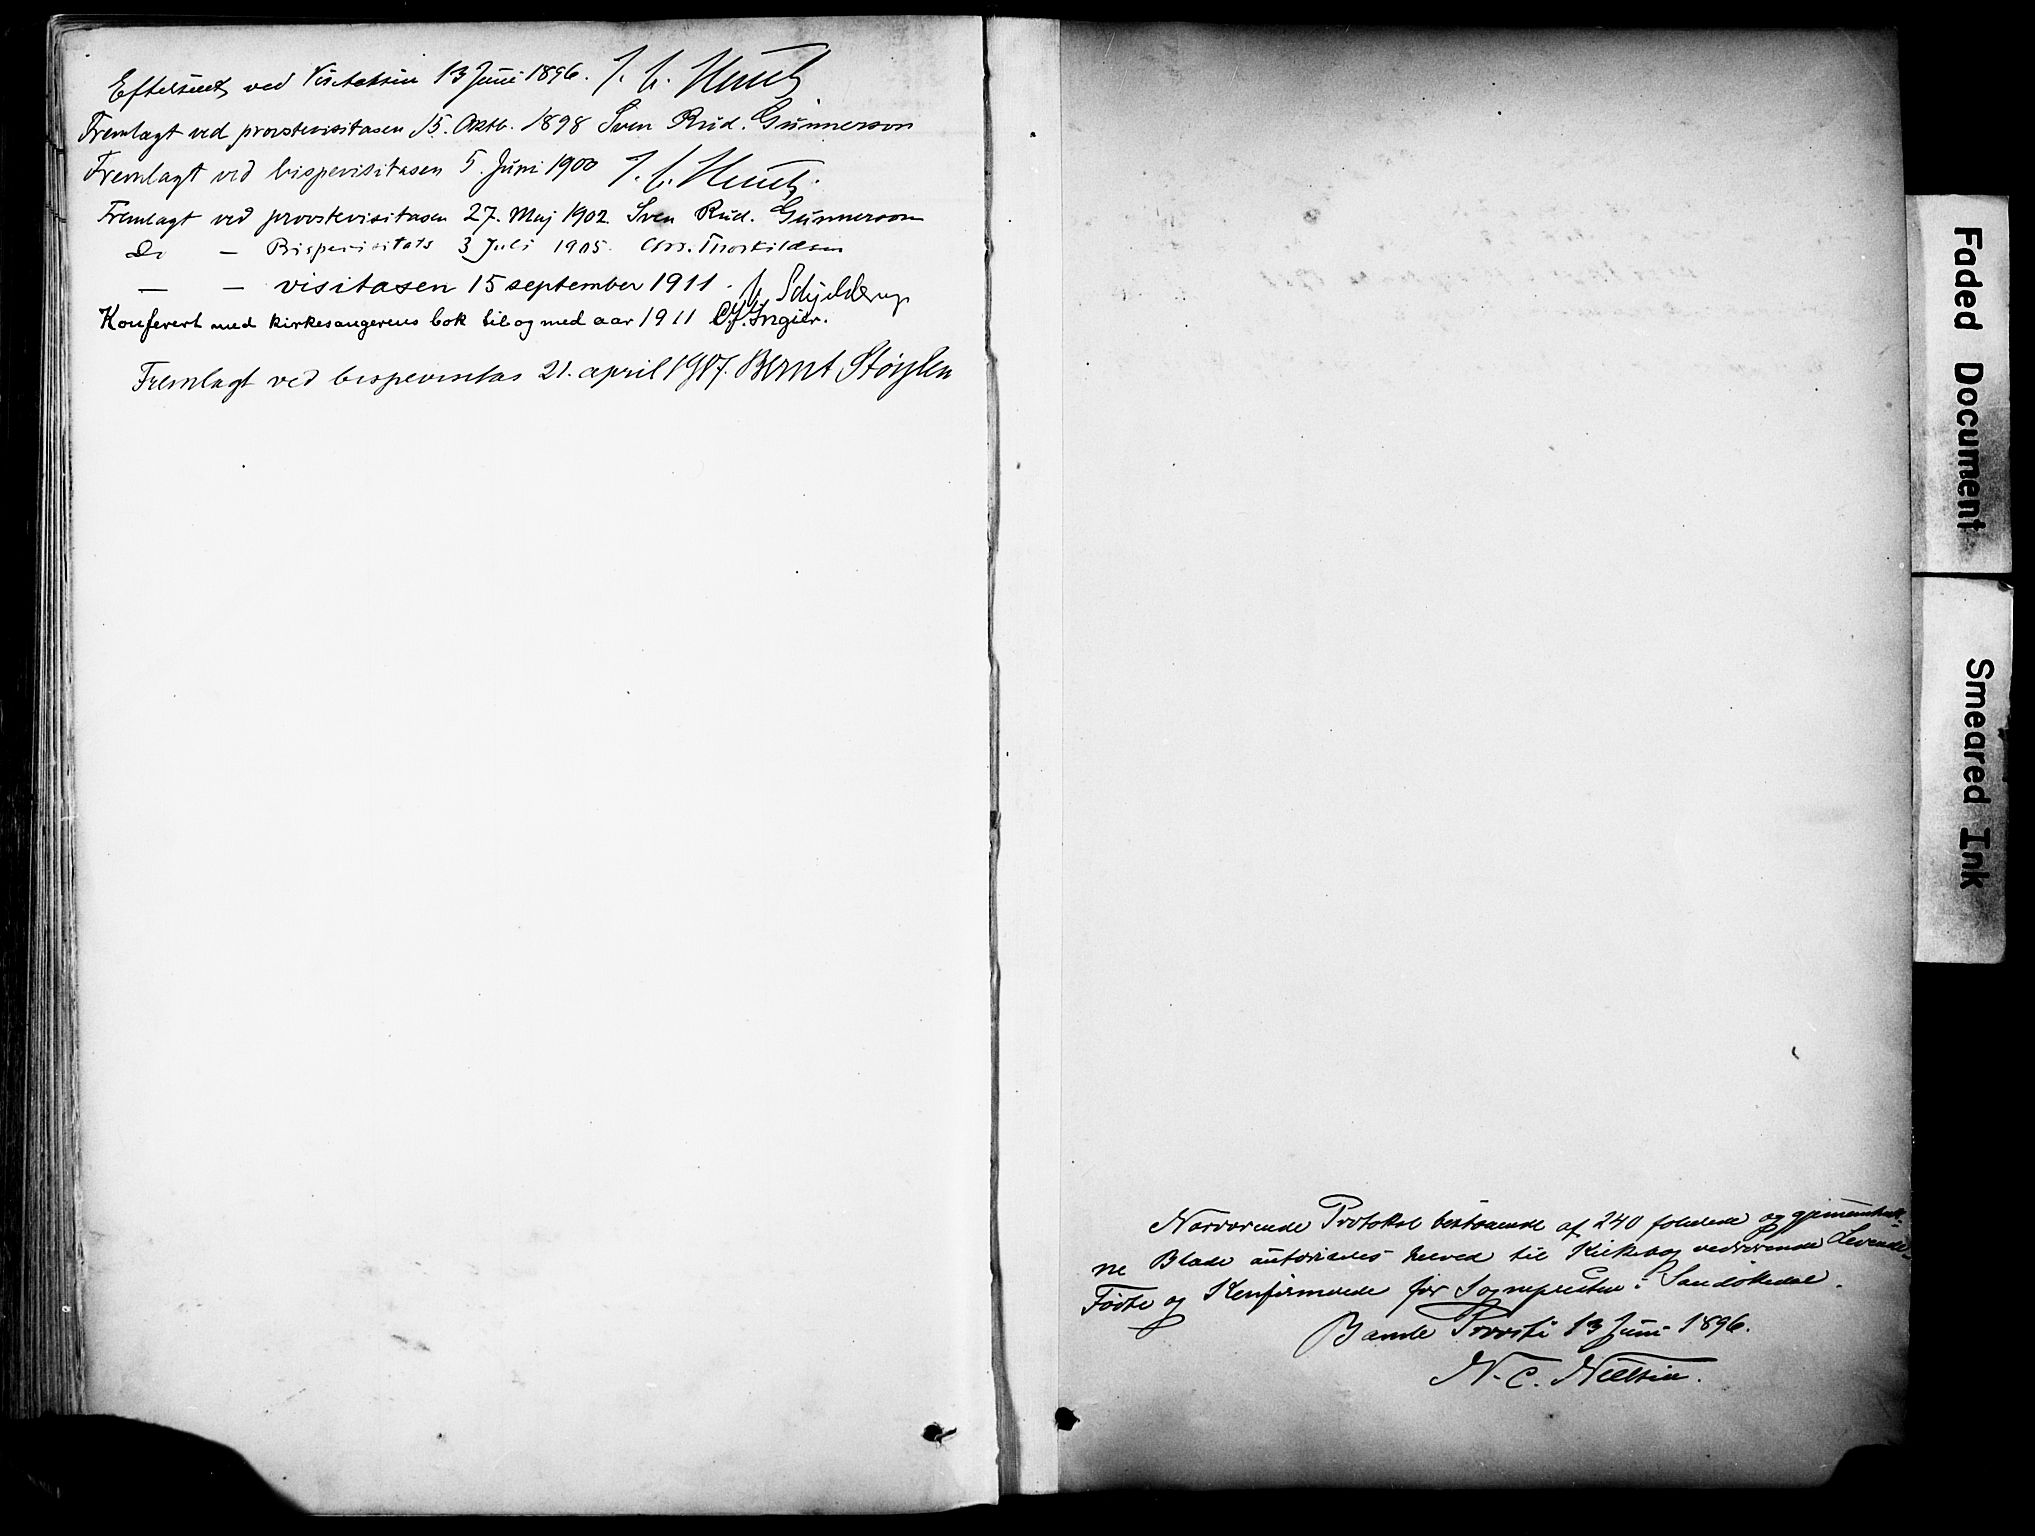 Efterseet ved Visitatsen 13 Juni 1896. J. C. Heuch
Fremlagt ved provstevisitasen 15. Oktb. 1898 Sven Rud. Gunnerson
Fremlagt ved bispevisitasen 5. Juni 1900 J. C. Heuch.
Fremlagt ved provstevisitasen 27. Maj 1902 Sven Rud. Gunnerson
Do — Bispevisitats 3 Juli 1905. Chrs. Thorkildsen
— — visitasen 15 september 1911. Schjelderup
Konferert med kirkesangerens bok til og med aar 1911 Ingier.
Fremlagt ved bispevisitas 21. april 1917. Bernt Støylen
Nærværende Protokol bestaaende af 240 folierede og gjennemtruk-
ne Blade autoriseres herved til Kirkebog vedrørende Levende-
Fødte og Konfirmerede for Sognepresten i Sandøkedal.
Bamle Provsti 13 Juni 1896.
N. C. Nielsen.
Faded Document
Smeared Ink